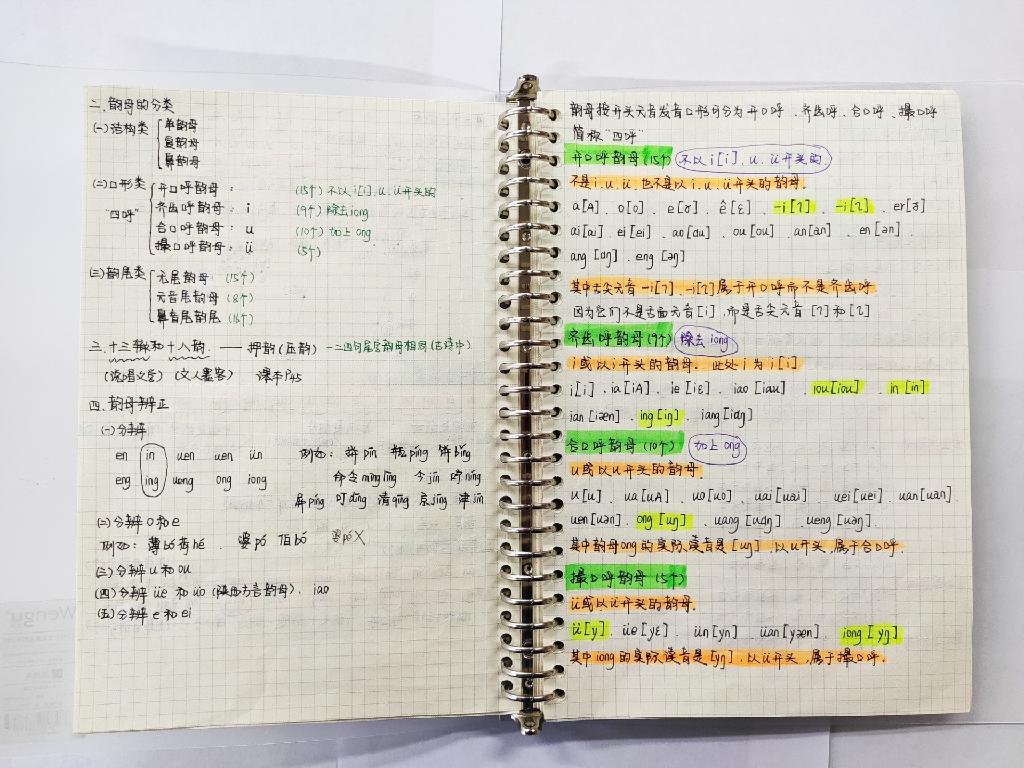 二、韵母的分类
(一)结构类 单韵母
复韵母
鼻韵母
(二)口形类 开口呼韵母： (15个) 不以i[i]、u、ü开头的
"四呼" 齐齿呼韵母：i (9个) 除去iong
合口呼韵母：u (10个) 加上ong
撮口呼韵母：ü (5个)
(三)韵尾类 无尾韵母 (15个)
元音尾韵母 (8个)
鼻音尾韵母 (16个)
三、十三辙和十八韵. —— 押韵(压韵) -二四句尾音韵母相同(古诗中)
(说唱文学) (文人墨客) 课本P45
四、韵母辨正
(一)分辨
en in uen uen ün 例如：拼pīn 乒pīng 饼bǐng
eng ing ueng ong iong 命令mìng lìng 今jīn 咛níng
屏píng 叮dīng 清qīng 京jīng 津jīn
(二)分辨o和e
例如：薄bó荷hé. 婆pó 伯bó 婆pé X
(三)分辨u和ou
(四)分辨üe和üo(陕西方言韵母)、iao
(五)分辨e和ei
韵母按开头元音发音口形可分为开口呼、齐齿呼、合口呼、撮口呼
简称"四呼"
开口呼韵母(15个) 不以i[i]、u、ü开头的
不是i、u、ü,也不是以i、u、ü开头的韵母.
a[A]、o[o]、e[ɤ]、ê[ɛ]、-i[ɿ]、-i[ʅ]、er[ɚ]
ai[ai]、ei[ei]、ao[ɑu]、ou[ou]、an[an]、en[ən]、
ang[ɑŋ]、eng[əŋ]
其中舌尖元音-i[ɿ]、-i[ʅ]属于开口呼而不是齐齿呼
因为它们不是舌面元音[i],而是舌尖元音[ɿ]和[ʅ]
齐齿呼韵母(9个) 除去iong
i或以i开头的韵母. 此处i为i[i]
i[i]、ia[iA]、ie[iɛ]、iao[iɑu]、iou[iou]、in[in]
ian[iæn]、ing[iŋ]、iang[iɑŋ]
合口呼韵母(10个) 加上ong
u或以u开头的韵母.
u[u]、ua[uA]、uo[uo]、uai[uai]、uei[uei]、uan[uan]、
uen[uən]、ong[uŋ]、uang[uɑŋ]、ueng[uəŋ].
其中韵母ong的实际读音是[uŋ],以u开头,属于合口呼.
撮口呼韵母(5个)
ü或以ü开头的韵母.
ü[y]、üe[yɛ]、ün[yn]、üan[yæn]、iong[yŋ]
其中iong的实际读音是[yŋ],以ü开头,属于撮口呼.